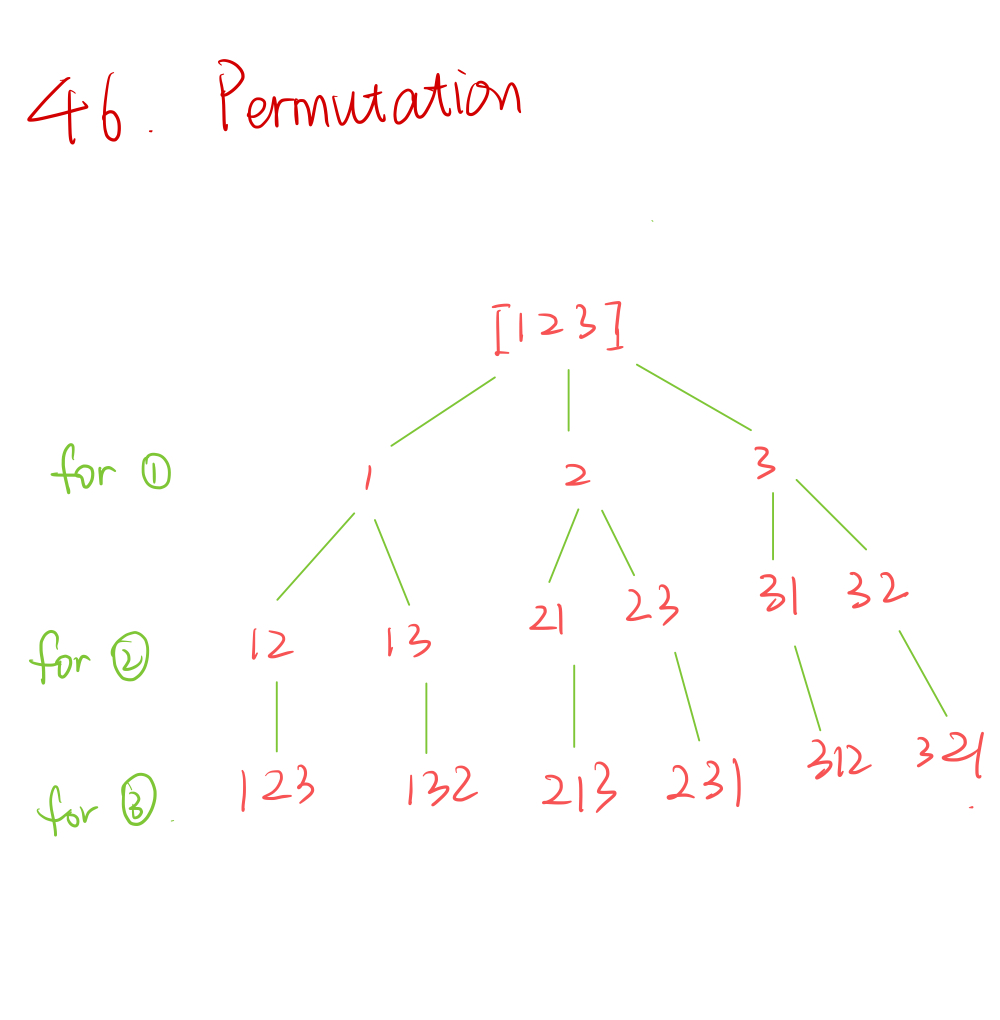 46. Permutation
[1 2 3]
for ① 1 2 3
for ② 12 13 21 23 31 32
for ③ 123 132 213 231 312 321